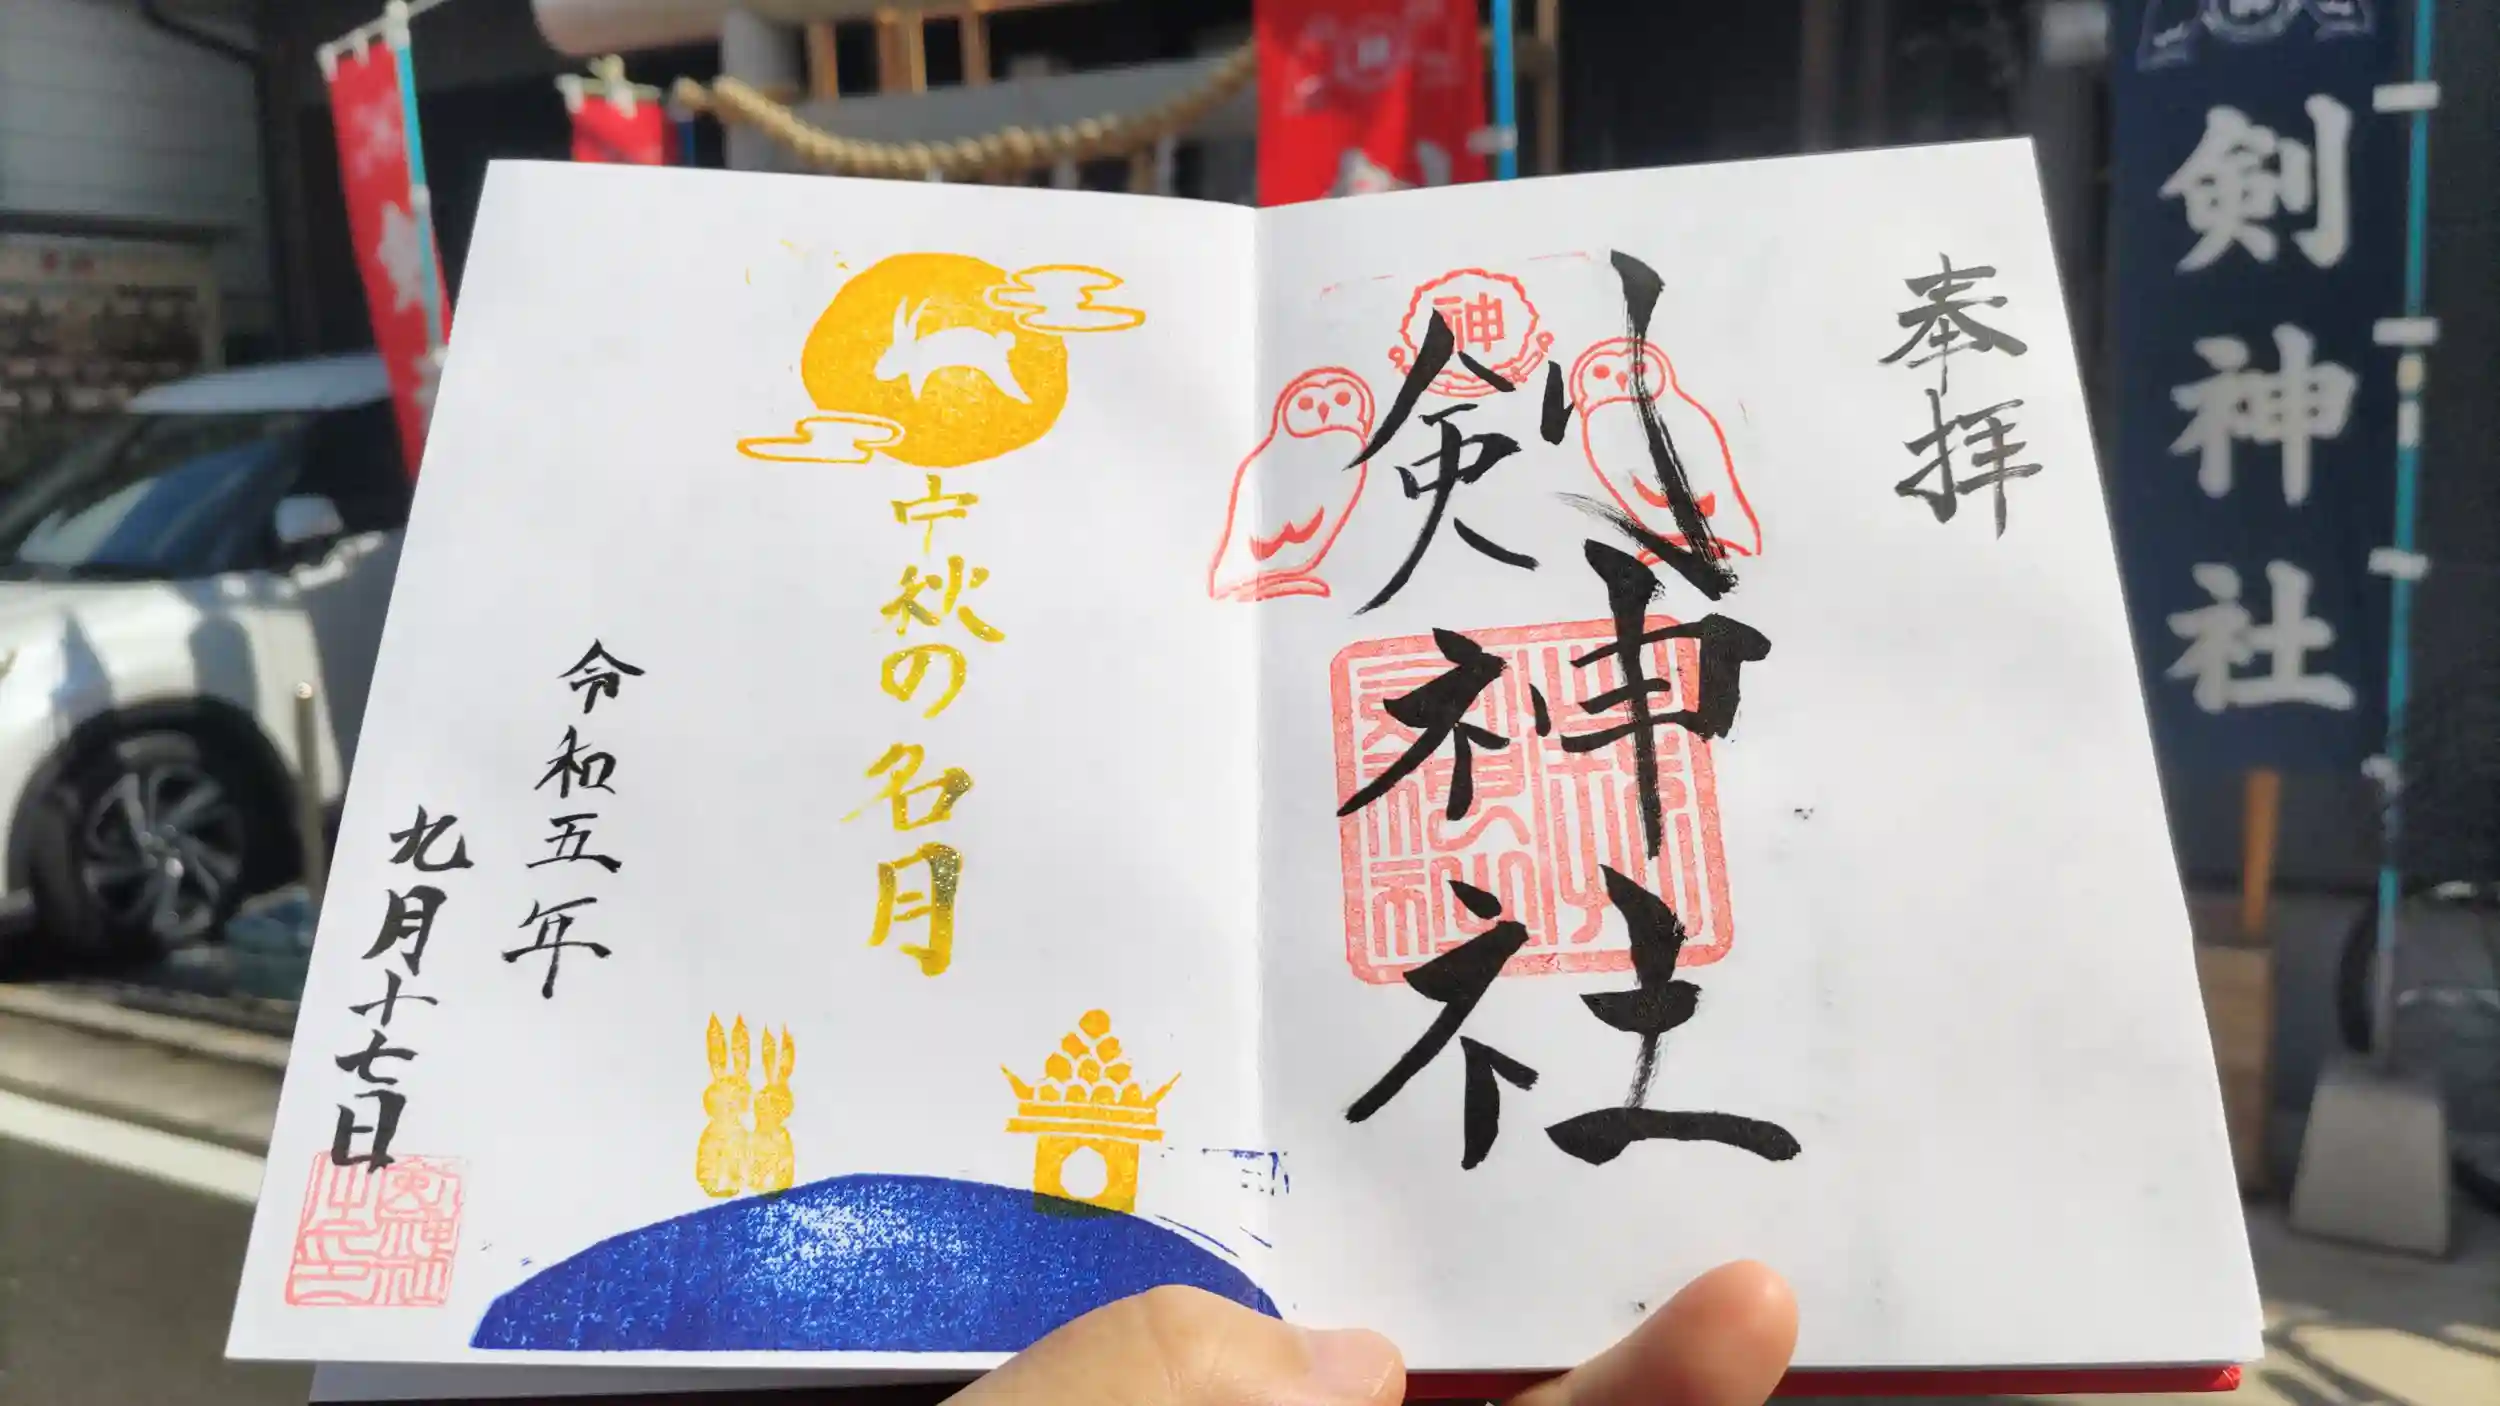 奉拝
剣神社
神
中秋の名月
令和五年
九月十七日
剣神社